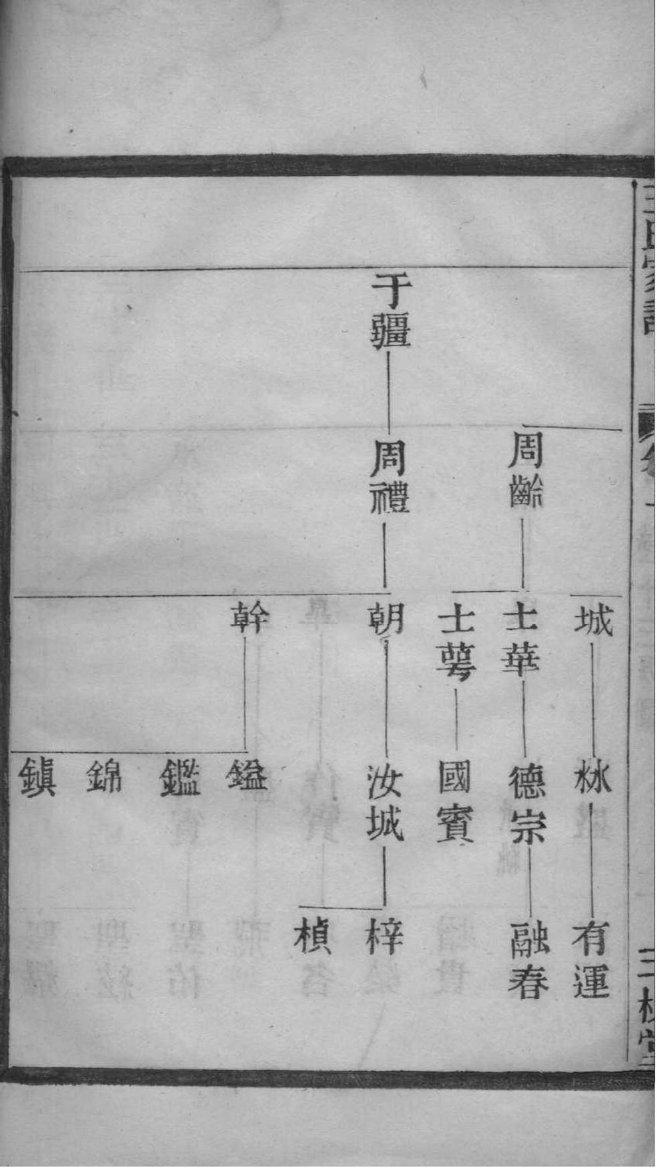 王氏宗譜 卷
三槐堂
于疆
周齡
周禮
城
士華
士萼
朝
幹
林
德宗
國賓
汝城
鎰
鑑
錦
鎮
有運
融春
梓
楨